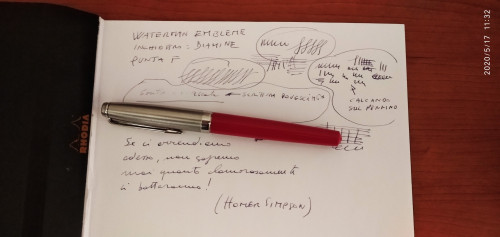 WATERMAN EMBLEME
INCHIOSTRO: DIAMINE
PUNTA F
CALCANDO
SUL PENNINO
Se ci arrendiamo
adesso, non sapremo
mai quanto clamorosamente
ci batteranno!
(HOMER SIMPSON)
RHODIA
2020/5/17 11:32